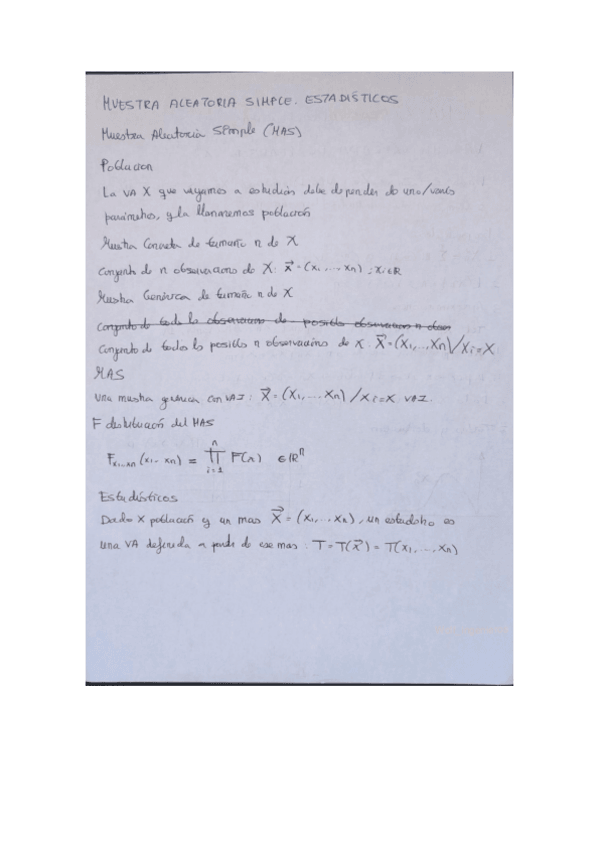 MUESTRA ALEATORIA SIMPLE. ESTADÍSTICOS
Muestra Aleatoria Simple (MAS)
Población
La VA X que vayamos a estudiar debe depender de uno/varios
parámetros, y la llamaremos población
Muestra Concreta de tamaño n de X
Conjunto de n observaciones de X: x⃗ = (x₁, ..., xₙ) ; xᵢ ∈ ℝ
Muestra Genérica de tamaño n de X
Conjunto de todos los posibles n observaciones de X. X⃗ = (X₁, ..., Xₙ) / Xᵢ = X
MAS
Una muestra genérica con VAI: X⃗ = (X₁, ... Xₙ) / Xᵢ = X VAI.
F distribución del MAS
F_{x₁...xₙ} (x₁... xₙ) = ∏_{i=1}^{n} F(xᵢ) ∈ ℝⁿ
Estadísticos
Dada X población y un mas X⃗ = (X₁, ..., Xₙ), un estadístico es
una VA definida a partir de ese mas: T = T(X⃗) = T(X₁, ..., Xₙ)